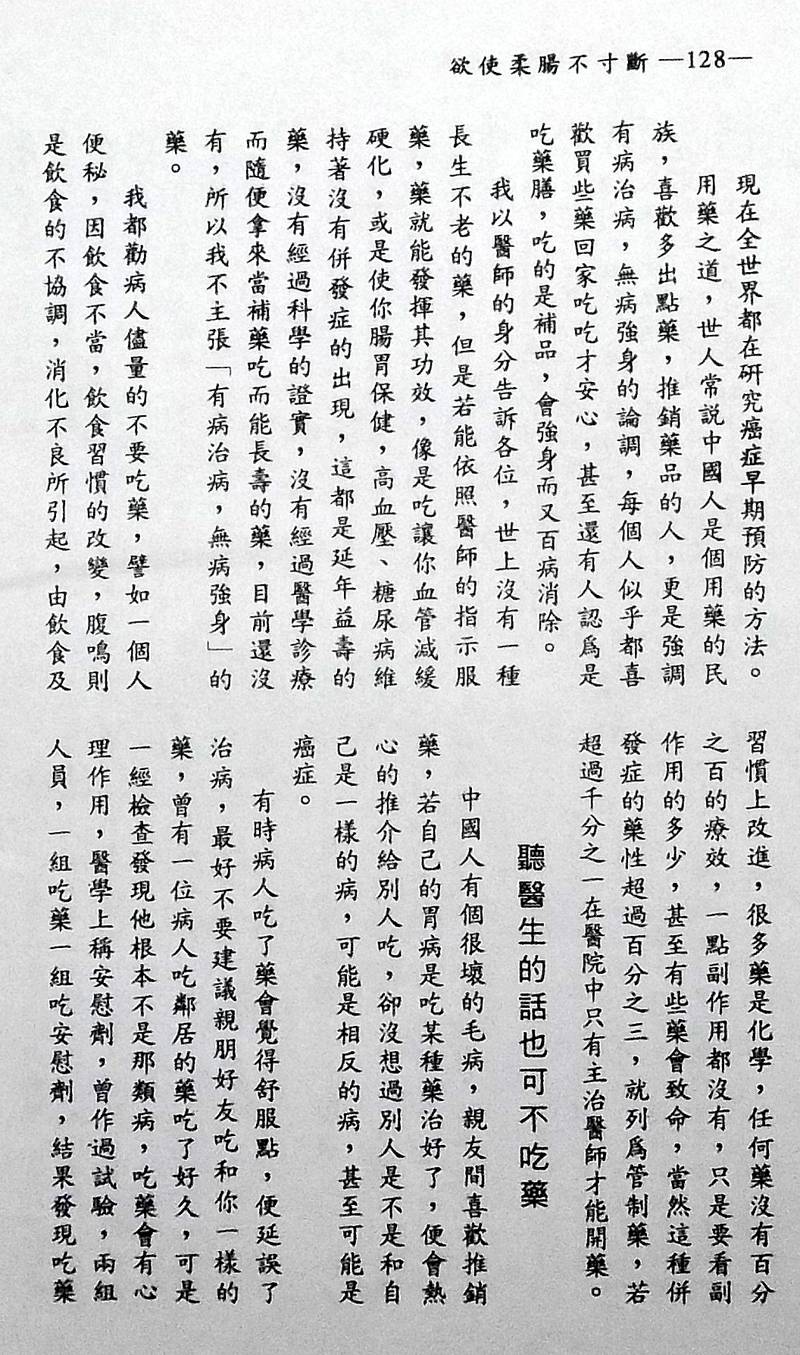 欲使柔腸不寸斷 —128—
現在全世界都在研究癌症早期預防的方法。
用藥之道，世人常說中國人是個用藥的民
族，喜歡多出點藥，推銷藥品的人，更是強調
有病治病，無病強身的論調，每個人似乎都喜
歡買些藥回家吃吃才安心，甚至還有人認爲是
吃藥膳，吃的是補品，會強身而又百病消除。
我以醫師的身分告訴各位，世上沒有一種
長生不老的藥，但是若能依照醫師的指示服
藥，藥就能發揮其功效，像是吃讓你血管減緩
硬化，或是使你腸胃保健，高血壓、糖尿病維
持著沒有併發症的出現，這都是延年益壽的
藥，沒有經過科學的證實，沒有經過醫學診療
而隨便拿來當補藥吃而能長壽的藥，目前還沒
有，所以我不主張「有病治病，無病強身」的
藥。
我都勸病人儘量的不要吃藥，譬如一個人
便秘，因飲食不當，飲食習慣的改變，腹鳴則
是飲食的不協調，消化不良所引起，由飲食及
習慣上改進，很多藥是化學，任何藥沒有百分
之百的療效，一點副作用都沒有，只是要看副
作用的多少，甚至有些藥會致命，當然這種併
發症的藥性超過百分之三，就列爲管制藥，若
超過千分之一在醫院中只有主治醫師才能開藥。
聽醫生的話也可不吃藥
中國人有個很壞的毛病，親友間喜歡推銷
藥，若自己的胃病是吃某種藥治好了，便會熱
心的推介給別人吃，卻沒想過別人是不是和自
己是一樣的病，可能是相反的病，甚至可能是
癌症。
有時病人吃了藥會覺得舒服點，便延誤了
治病，最好不要建議親朋好友吃和你一樣的
藥，曾有一位病人吃鄰居的藥吃了好久，可是
一經檢查發現他根本不是那類病，吃藥會有心
理作用，醫學上稱安慰劑，曾作過試驗，兩組
人員，一組吃藥一組吃安慰劑，結果發現吃藥